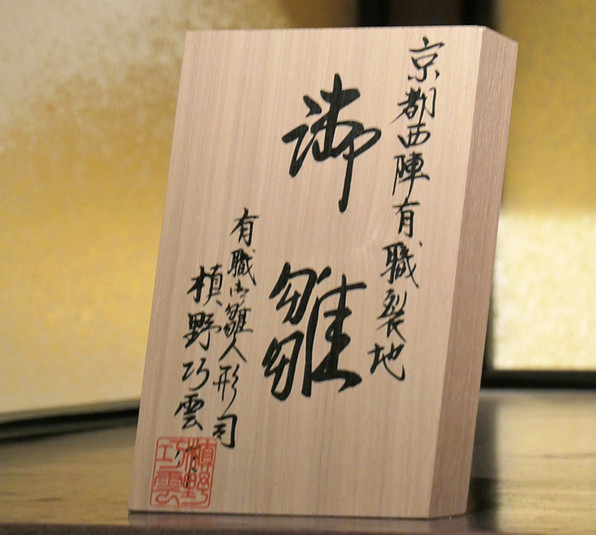 京都西陣有職裂地
御雛
有職御雛人形司
槙野巧雲
槙野巧雲